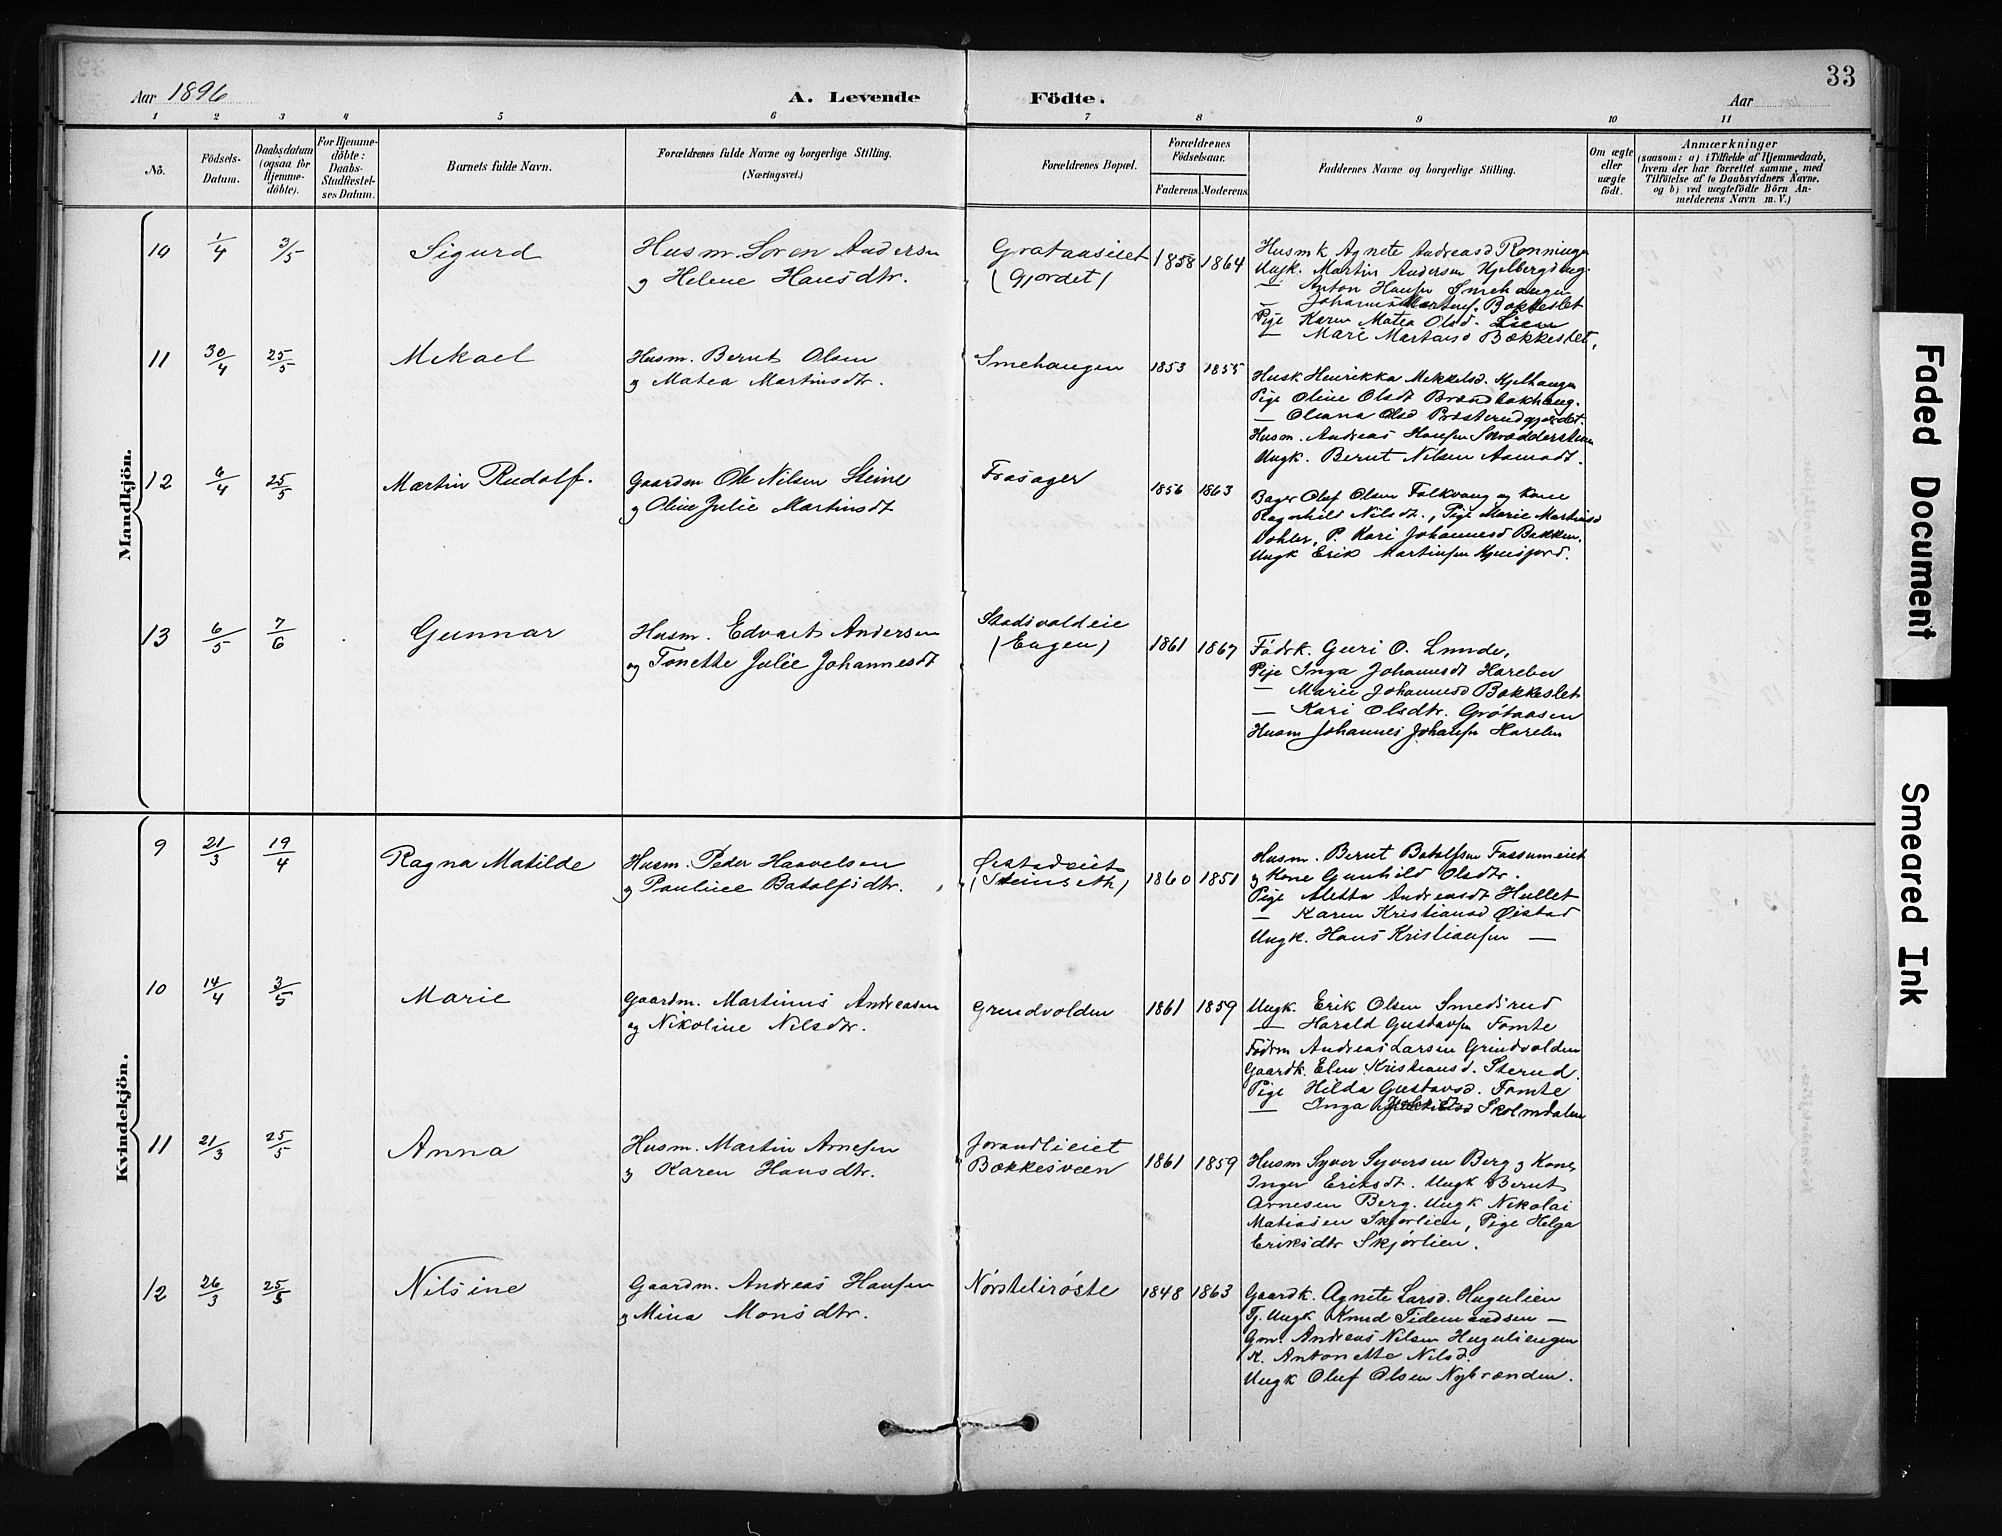 33
Aar 1896
A. Levende Födte.
Aar
1 2 3 4 5 6 7 8 9 10 11
No.
Födsels-Datum.
Daabsdatum (ogsaa for Hjemme-döbte).
For Hjemme-döbte: Daabs-Stadfæstel-ses Datum.
Barnets fulde Navn.
Forældrenes fulde Navne og borgerlige Stilling.
(Næringsvei.)
Forældrenes Bopæl.
Forældrenes Födselsaar.
Faderens. Moderens.
Faddernes Navne og borgerlige Stilling.
Om ægte eller uægte födt.
Anmærkninger
(saasom: a) i Tilfælde af Hjemmedaab,
hvem der har forrettet samme, med
Tilföielse af to Daabsvidners Navne.
og b) ved uægtefödte Börn An-
melderens Navn m. V.)
Mandkjön.
10 1/4 3/5 Sigurd
Husm. Soren Andersen
og Helene Hansdtr.
Grataaseiet
(Gjordet)
1858 1864
Husmk Agnete Andreasd Ronningen
Ungk. Martin Andersen Kjelbergdeng.
— Anton Hansen Smehaugen
— Johannes Martins. Bækkeslet
Pige Karen Matea Olsd. Lien
— Mari Martinsd Bækkeslet.
11 30/4 25/5 Mekael
Husm. Bernt Olsen
og Matea Martinsdtr.
Smehaugen
1853 1855
Husk Henrikka Mekkelsd. Kjelhaugen
Pige Oline Olsdt Brændbakhaug.
— Oleana Olsd Præsterudgjordet.
Husm. Andreas Hansen Skrædderstuen
Ungk. Bernt Nilsen Aamodt.
12 6/4 25/5 Martin Rudolf.
Gaardm Ole Nilsen Steine
og Oline Julie Martinsdt
Frosager
1856 1863
Bager Olaf Olsen Falkvang og Kone
Ragnhild Nilsdt., Pige Marie Martinsd
Dohler, P. Kari Johannesd Bakken.
Ungk Erik Martinsen Kjensjord.
13 6/5 7/6 Gunnar
Husm. Edvart Andersen
og Tonette Julie Johannesdt
Stadsvoldeie
(Engen)
1861 1867
Födrk. Guri O. Lunde,
Pige Inga Johannesdt Hareber
— Marie Johannesd Bækkeslet
— Kari Olsdtr. Grötaasen
Husm Johannes Johansen Hareber
Kvindekjön.
9 21/3 19/4 Ragna Matilde
Husm. Peder Haavelsen
og Pauline Batolfsdtr.
Øistadeiet
(Steinseth)
1860 1851
Husm. Bernt Batolfsen Fossumeiet
og Kone Gunhild Olsdtr.
Pige Aletta Andreasdt Hullet
— Karen Kristiansd Øistad
Ungk. Hans Kristiansen —
10 14/4 3/5 Marie
Gaardm. Martinus Andreasen
og Nikoline Nilsdtr.
Grindvolden
1861 1859
Ungk. Erik Olsen Smedsrud
— Harald Gustavsen Tomte
Födrm Andreas Larsen Grindvolden
Gaardk. Elen Kristiansd. Sterud.
Pige Hilda Gustavsd. Tomte
— Inga Skolmdalen
11 21/3 25/5 Anna
Husm. Martin Arnesen
og Karen Hansdtr.
Jorandlieiet
Bækkesveen
1861 1859
Husm Syver Syversen Berg og Kone,
Inger Eriksdt. Ungk Bernt
Arnesen Berg. Ungk Nikolai
Matiasen Skjørlien, Pige Helga
Eriksdtr Skjørlien.
12 26/3 25/5 Nilsine
Gaardm. Andreas Hansen
og Mina Monsdtr.
Nørstelirøste
1848 1863
Gaardk. Agnete Larsd. Hugulien
Tj. Ungk Knud Tidemandsen —
Gm. Andreas Nilsen Hugulieengen
K. Antonette Nilsd.
Ungk Oluf Olsen Nybrænden.
Faded Document
Smeared Ink